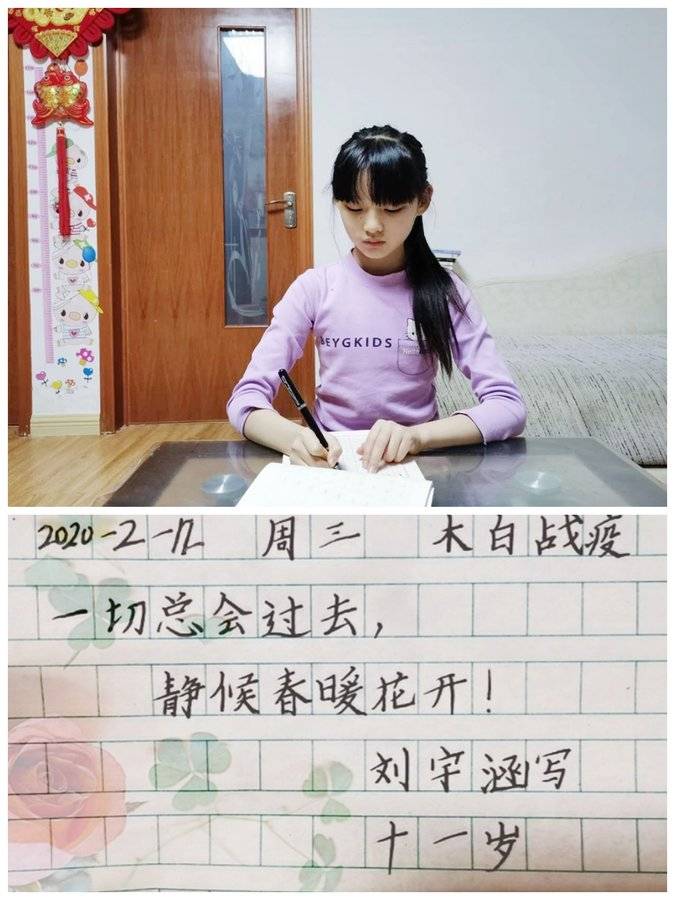 BEYGKIDS
2020-2-12 周三 木白战疫
一切总会过去，
静候春暖花开！
刘宇涵写
十一岁